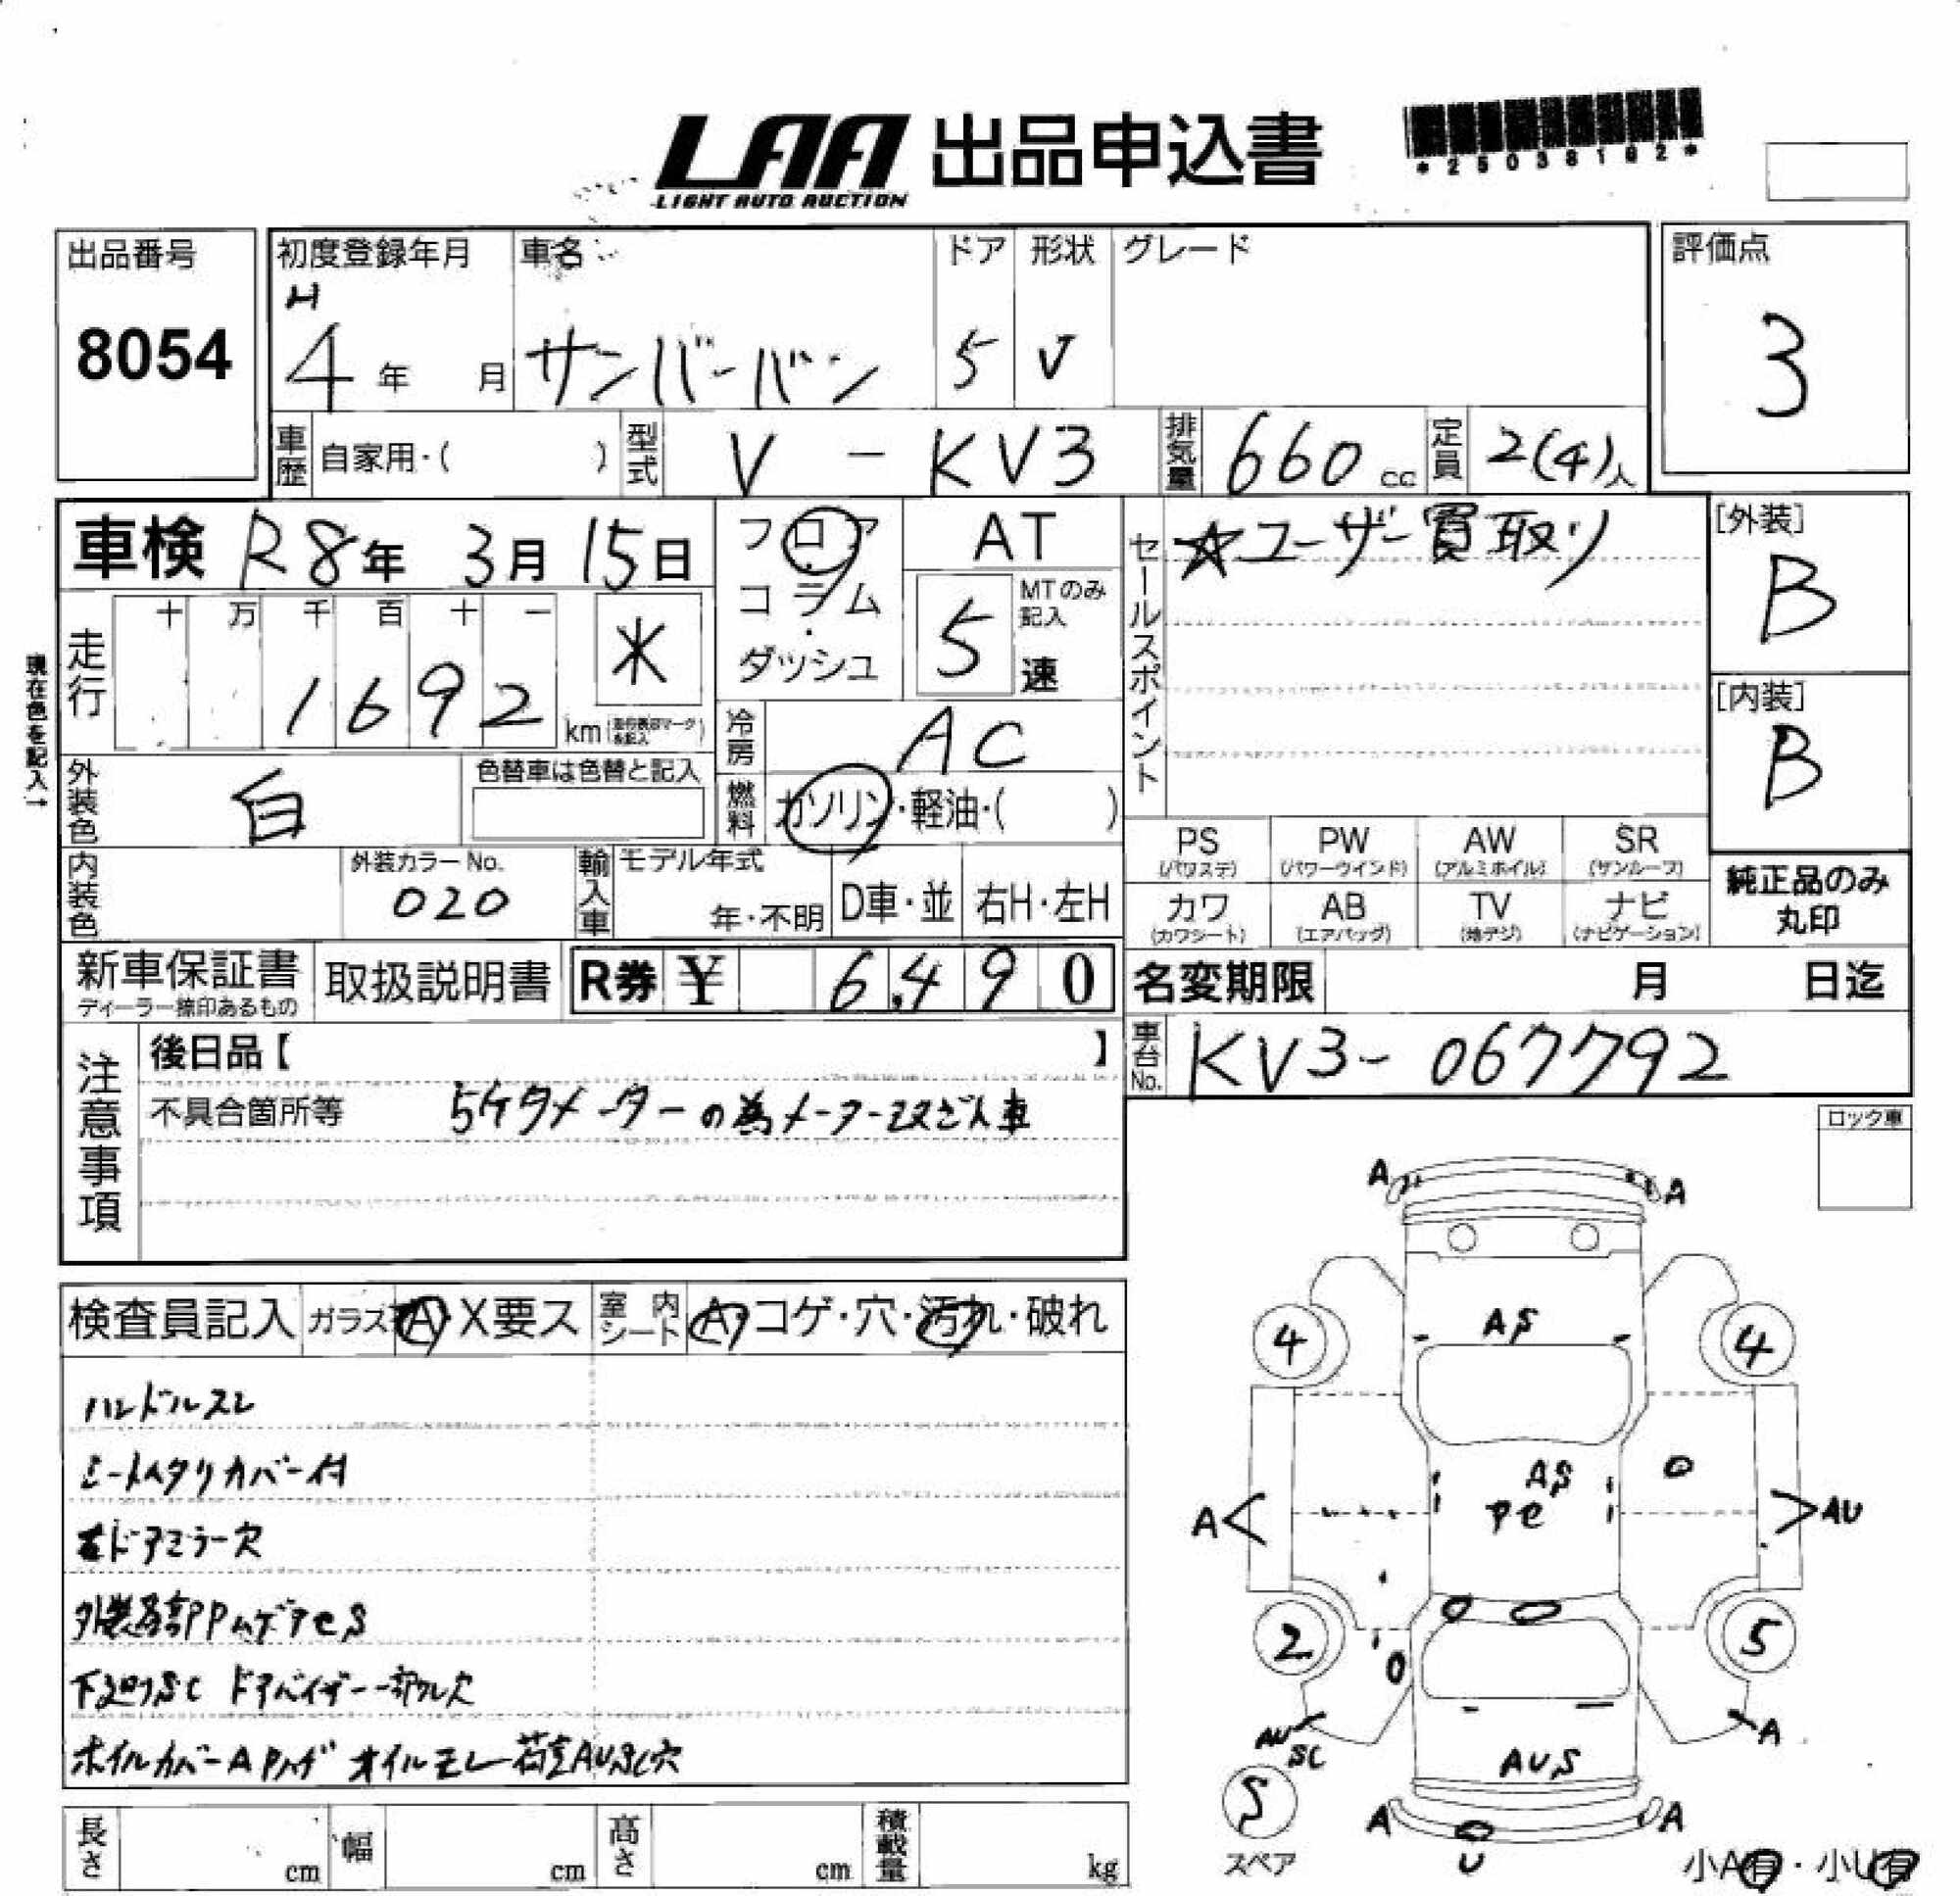 LAA 出品申込書
LIGHT AUTO AUCTION
*25038192*
出品番号
8054
初度登録年月
H
4年 月
車名
サンバーバン
ドア
5
形状
V
グレード
評価点
3
車歴 自家用・( )
型式 V - KV3
排気量 660 cc
定員 2(4)人
車検 R8年 3月 15日
フロア・コラム・ダッシュ
AT
5 MTのみ記入 速
セールスポイント
☆ユーザー買取り
[外装]
B
[内装]
B
現在色を記入→
走行
十 万 千 百 十 一
1692 km
*
冷房 AC
外装色 白
色替車は色替と記入
燃料 ガソリン・軽油・( )
内装色
外装カラーNo.
020
輸入車
モデル年式
年・不明
D車・並
右H・左H
PS (パワステ)
PW (パワーウインド)
AW (アルミホイル)
SR (サンルーフ)
カワ (カワシート)
AB (エアバッグ)
TV (地デジ)
ナビ (ナビゲーション)
純正品のみ
丸印
新車保証書
ディーラー捺印あるもの
取扱説明書
R券 ¥ 6,490
名変期限 月 日迄
車台No. KV3-067792
注意事項
後日品【 】
不具合箇所等 5ケタメーターの為メーター改ざん車
ロック車
検査員記入
ガラス A・X要ス
室内シート A・コゲ・穴・汚れ・破れ
ハンドルスレ
シートヘタリカバー付
ドアミラー欠
外装 PPハゲPeS
下廻りSC ドアバイザー一部ワレ欠
ホイルカバーAPハゲ オイルモレ 荷室AUSC穴
長さ cm
幅 cm
高さ cm
積載量 kg
A A
4 AS 4
AS
Pe
A AU
2 5
AU
SC
A
AUS
S
スペア
A A
U
小A有・小U有